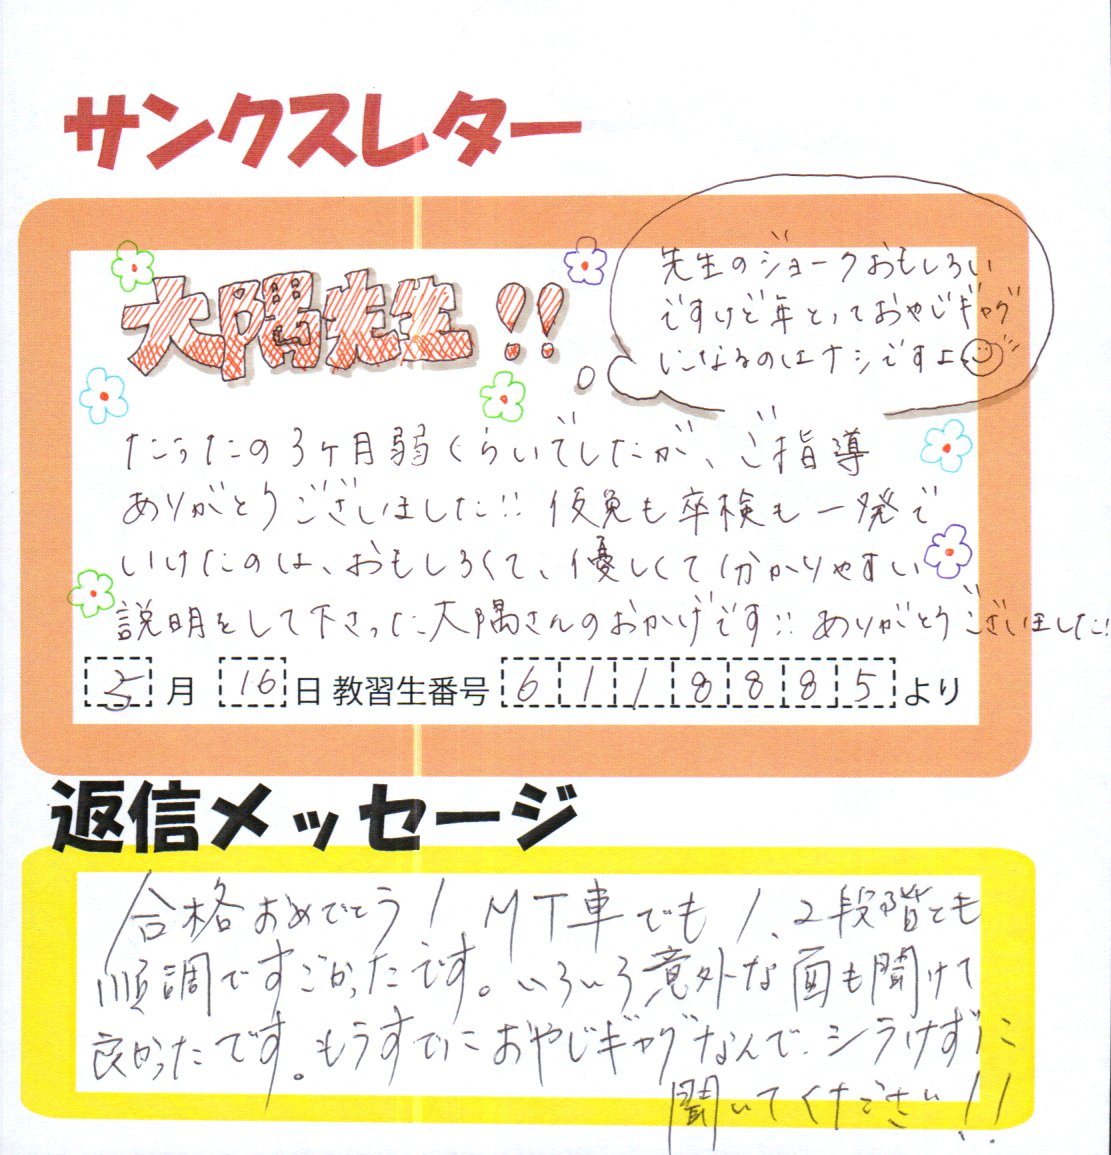 サンクスレター
大隅先生!!
先生のジョークおもしろい
ですけど年とっておやじギャグ
になるのはナシですよ
たったの3ヶ月弱くらいでしたが、ご指導
ありがとうございました!! 仮免も卒検も一発で
いけたのは、おもしろくて、優しくて分かりやすい
説明をして下さった大隅さんのおかげです!! ありがとうございました!!
3月16日 教習生番号 6118885 より
返信メッセージ
合格おめでとう! MT車でも1、2段階とも
順調ですごかったです。いろいろ意外な面も聞けて
良かったです。もうすでにおやじギャグなんで、シラけずに
聞いてください!!